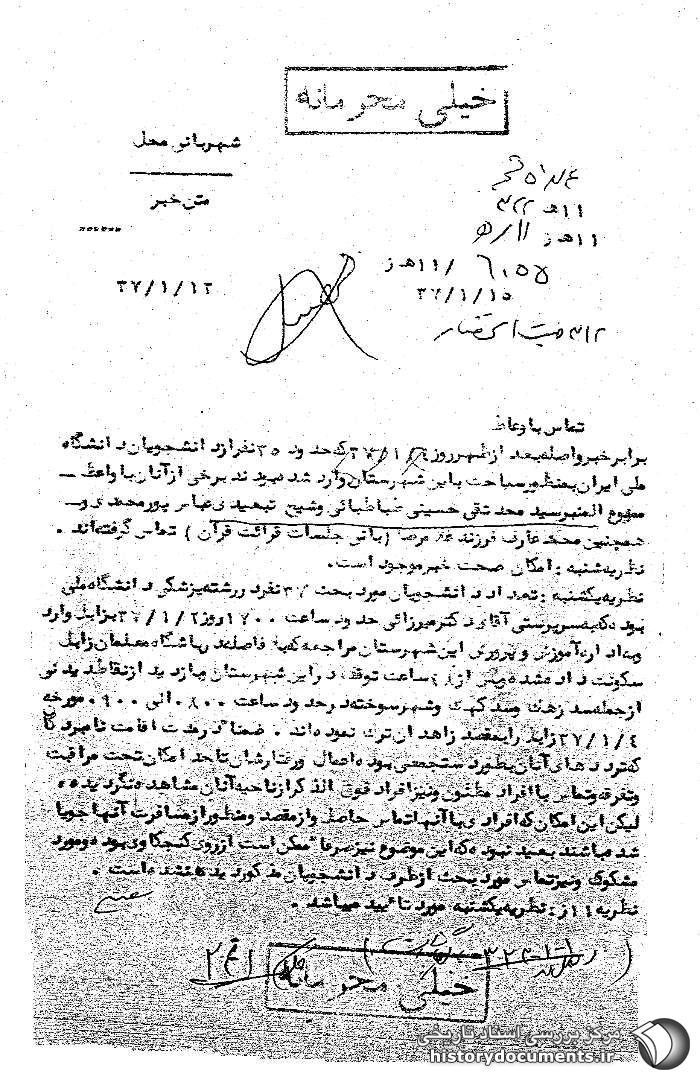 خیلی محرمانه
شهربانی محل
متن خبر
۱۱هـ ۳۲۲
۱۱هـ ز ۱۱/هـ
۶۰۵۵ /۱۱هـ ز
۳۷/۱/۱۵
۳۷/۱/۱۲
تماس با وعاظ
برابر خبر واصله بعد از ظهر روز ۳۷/۱/۲ که حدود ۳۵ نفر از دانشجویان دانشگاه
ملی ایران بمنظور سیاحت باین شهرستان وارد شده بودند برخی از آنان با واعظ
ممنوع المنبر سید محمد تقی حسینی طباطبائی و شیخ تبعیدی عباس پورمحمدی و
همچنین محمد عارف فرزند غلامرضا (بانی جلسات قرائت قرآن) تماس گرفته‌اند.
نظریه شنبه: امکان صحت خبر موجود است.
نظریه یکشنبه: تعداد دانشجویان مورد بحث نفر در رشته پزشکی دانشگاه ملی
بوده که به سرپرستی آقای دکتر میرزائی حدود ساعت ۱۷۰۰ روز ۳۷/۱/۲ بزابل وارد
و به اداره آموزش و پرورش این شهرستان مراجعه که بلافاصله در باشگاه معلمان زابل
سکونت داده شده و پس از ساعت توقف در این شهرستان و بازدید از نقاط دیدنی
از جمله سد زهک و سد کهک و شهر سوخته در حدود ساعت ۰۸۰۰ الی ۰۹۰۰ مورخه
۳۷/۱/۴ زابل را بمقصد زاهدان ترک نموده‌اند. ضمناً در مدت اقامت نامبردگان
که ترددهای آنان بطور دستجمعی بوده اعمال و رفتارشان تا حد امکان تحت مراقبت
و تفرقه و تماس با افراد مظنون و نیز افراد فوق الذکر از ناحیه آنان مشاهده نگردیده
لیکن این امکان که افرادی با آنها تماس حاصل و از مقصد و منظور از مسافرت آنها جویا
شده باشند بعید نبوده که این موضوع نیز صرفاً ممکن است از روی کنجکاوی بوده و مورد
مشکوک و نیز تماس مورد بحث از طرف دانشجویان مذکور دیده نشده است.
نظریه ۱۱ز: نظریه یکشنبه مورد تأیید میباشد.
خیلی محرمانه
مرکز بررسی اسناد تاریخی
historydocuments.ir